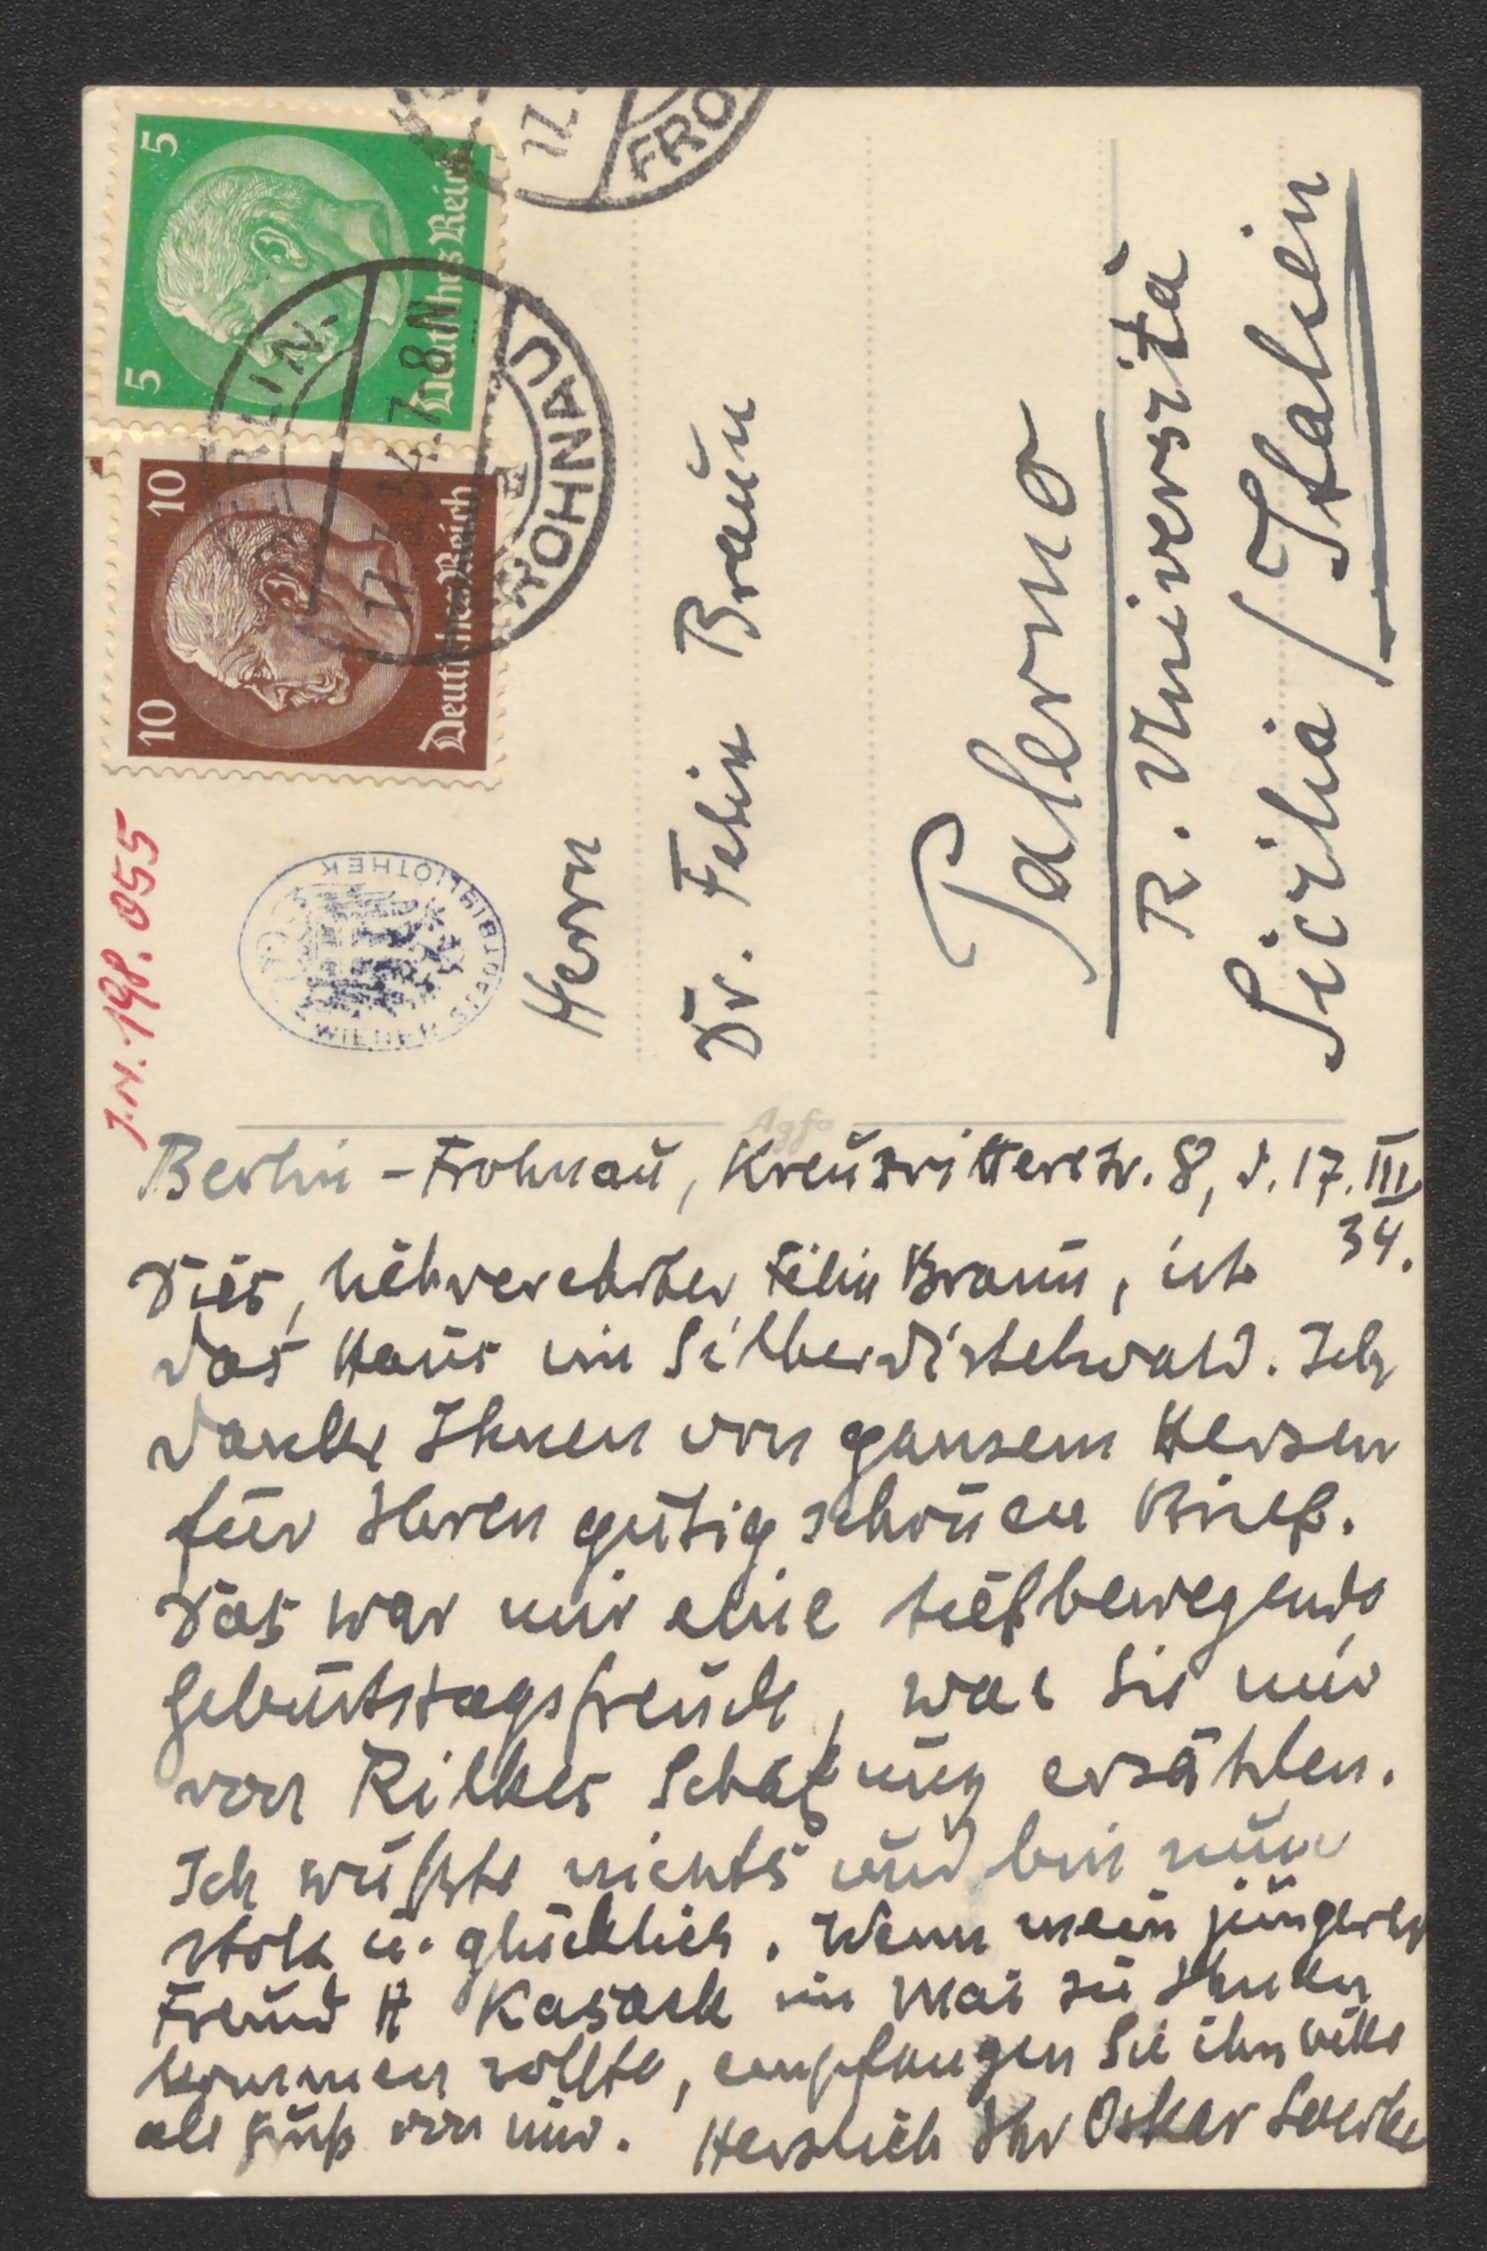 5
5
Deutsches Reich
10
10
Deutsches Reich
BERLIN-
FROHNAU
17.3.34.7-8N
17.
FRO
J.N. 198.055
WIENER STADTBIBLIOTHEK
Herrn
Dr. Felix Braun
Palermo
R. Università
Sicilia / Italien
Agfa
Berlin-Frohnau, Kreuzritterstr. 8, d. 17. III.
34.
Dies, liebverehrter Felix Braun, ist
das Haus im Silberdistelwald. Ich
danke Ihnen von ganzem Herzen
für Ihren gütig schönen Brief.
Das war mir eine tiefbewegende
Geburtstagsfreude, was Sie mir
von Rilkes Schätzung erzählen.
Ich wußte nichts und bin nun
stolz u. glücklich. Wenn mein jüngerer
Freund H Kasack im Mai zu Ihnen
kommen sollte, empfangen Sie ihn bitte
als Gruß von mir. Herzlich Ihr Oskar Loerke